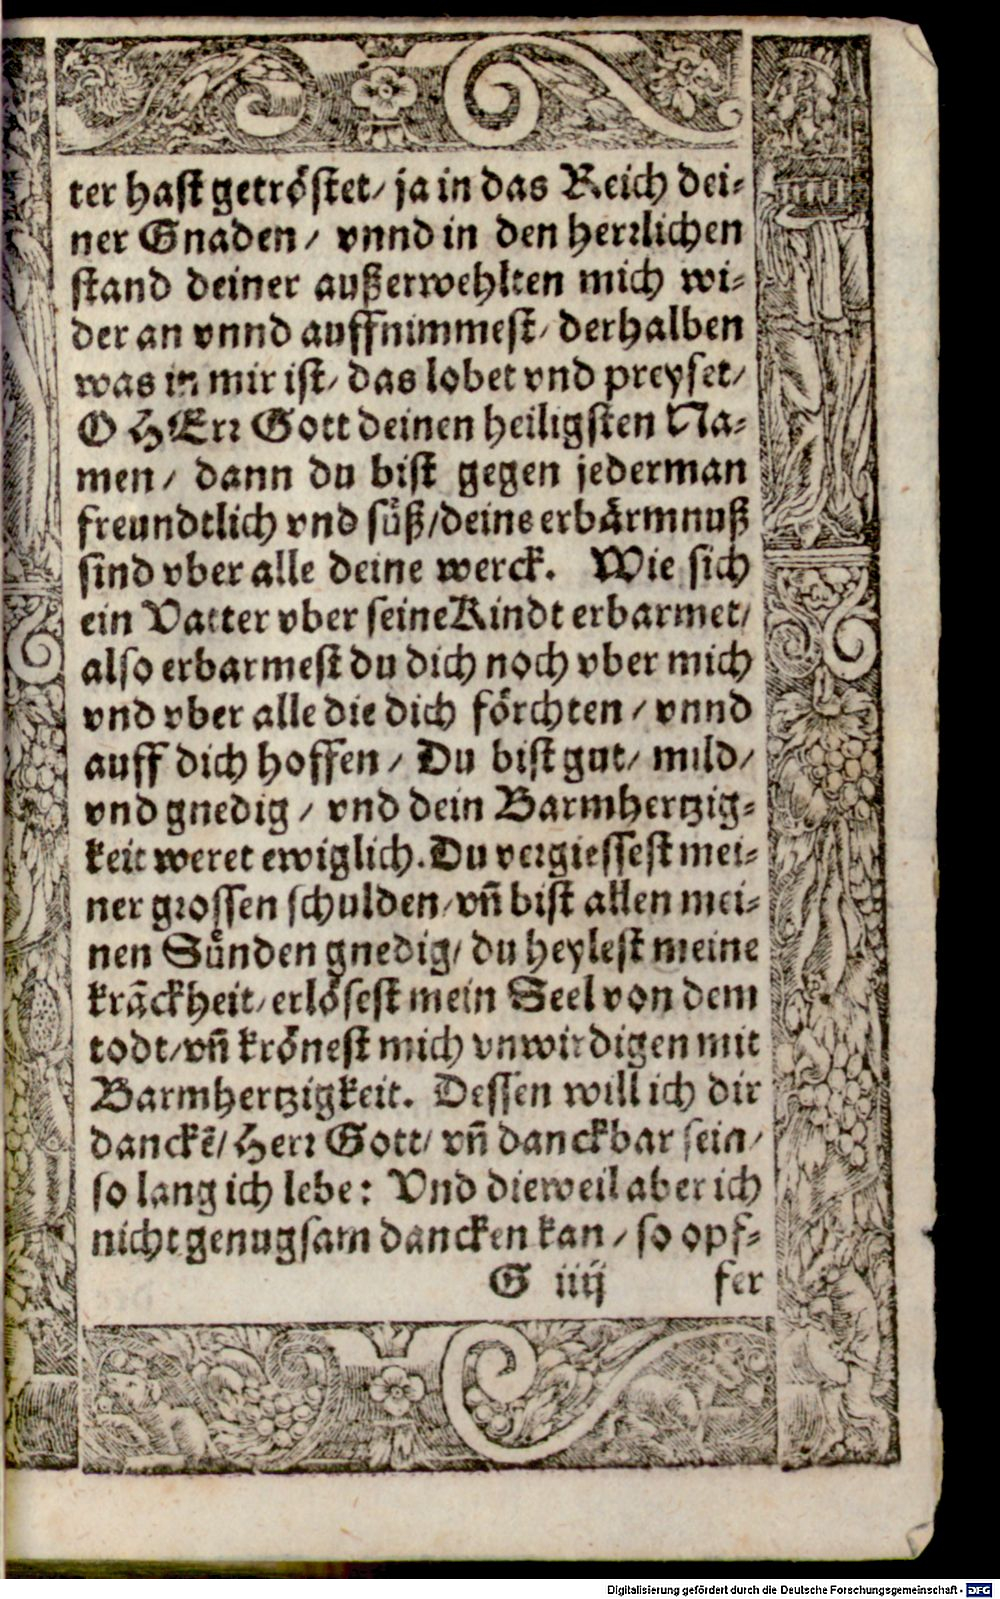 ter hast getröstet/ ja in das Reich dei-
ner Gnaden / vnnd in den herrlichen
stand deiner außerwehlten mich wi-
der an vnnd auffnimmest/ derhalben
was in mir ist/ das lobet vnd preyset/
O HErr Gott deinen heiligsten Na-
men / dann du bist gegen jederman
freundtlich vnd süß/ deine erbärmnuß
sind vber alle deine werck. Wie sich
ein Vatter vber seine Kindt erbarmet/
also erbarmest du dich noch vber mich
vnd vber alle die dich förchten / vnnd
auff dich hoffen / Du bist gut/ mild/
vnd gnedig / vnd dein Barmhertzig-
keit weret ewiglich. Du vergiessest mei-
ner grossen schulden/ vñ bist allen mei-
nen Sünden gnedig/ du heylest meine
kräckheit/ erlösest mein Seel von dem
todt/ vñ krönest mich vnwirdigen mit
Barmhertzigkeit. Dessen will ich dir
danckẽ/ Herr Gott/ vñ danckbar sein/
so lang ich lebe: Vnd dieweil aber ich
nicht genugsam dancken kan / so opf-
G iiij fer
Digitalisierung gefördert durch die Deutsche Forschungsgemeinschaft - DFG